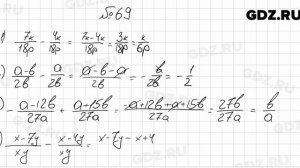 GDZ.RU
№69
) 7k/18p - 4k/18p = 7k-4k/18p = 3k/18p = k/6p
) a-b/2b - a/2b = a-b-a/2b = -b/2b = -1/2
) -a-12b/27a + a+15b/27a = -a+12b+a+15b/27a = 27b/27a = b/a
) x-7y/xy - x-4y/xy = x-7y-x+4
GDZ.RU